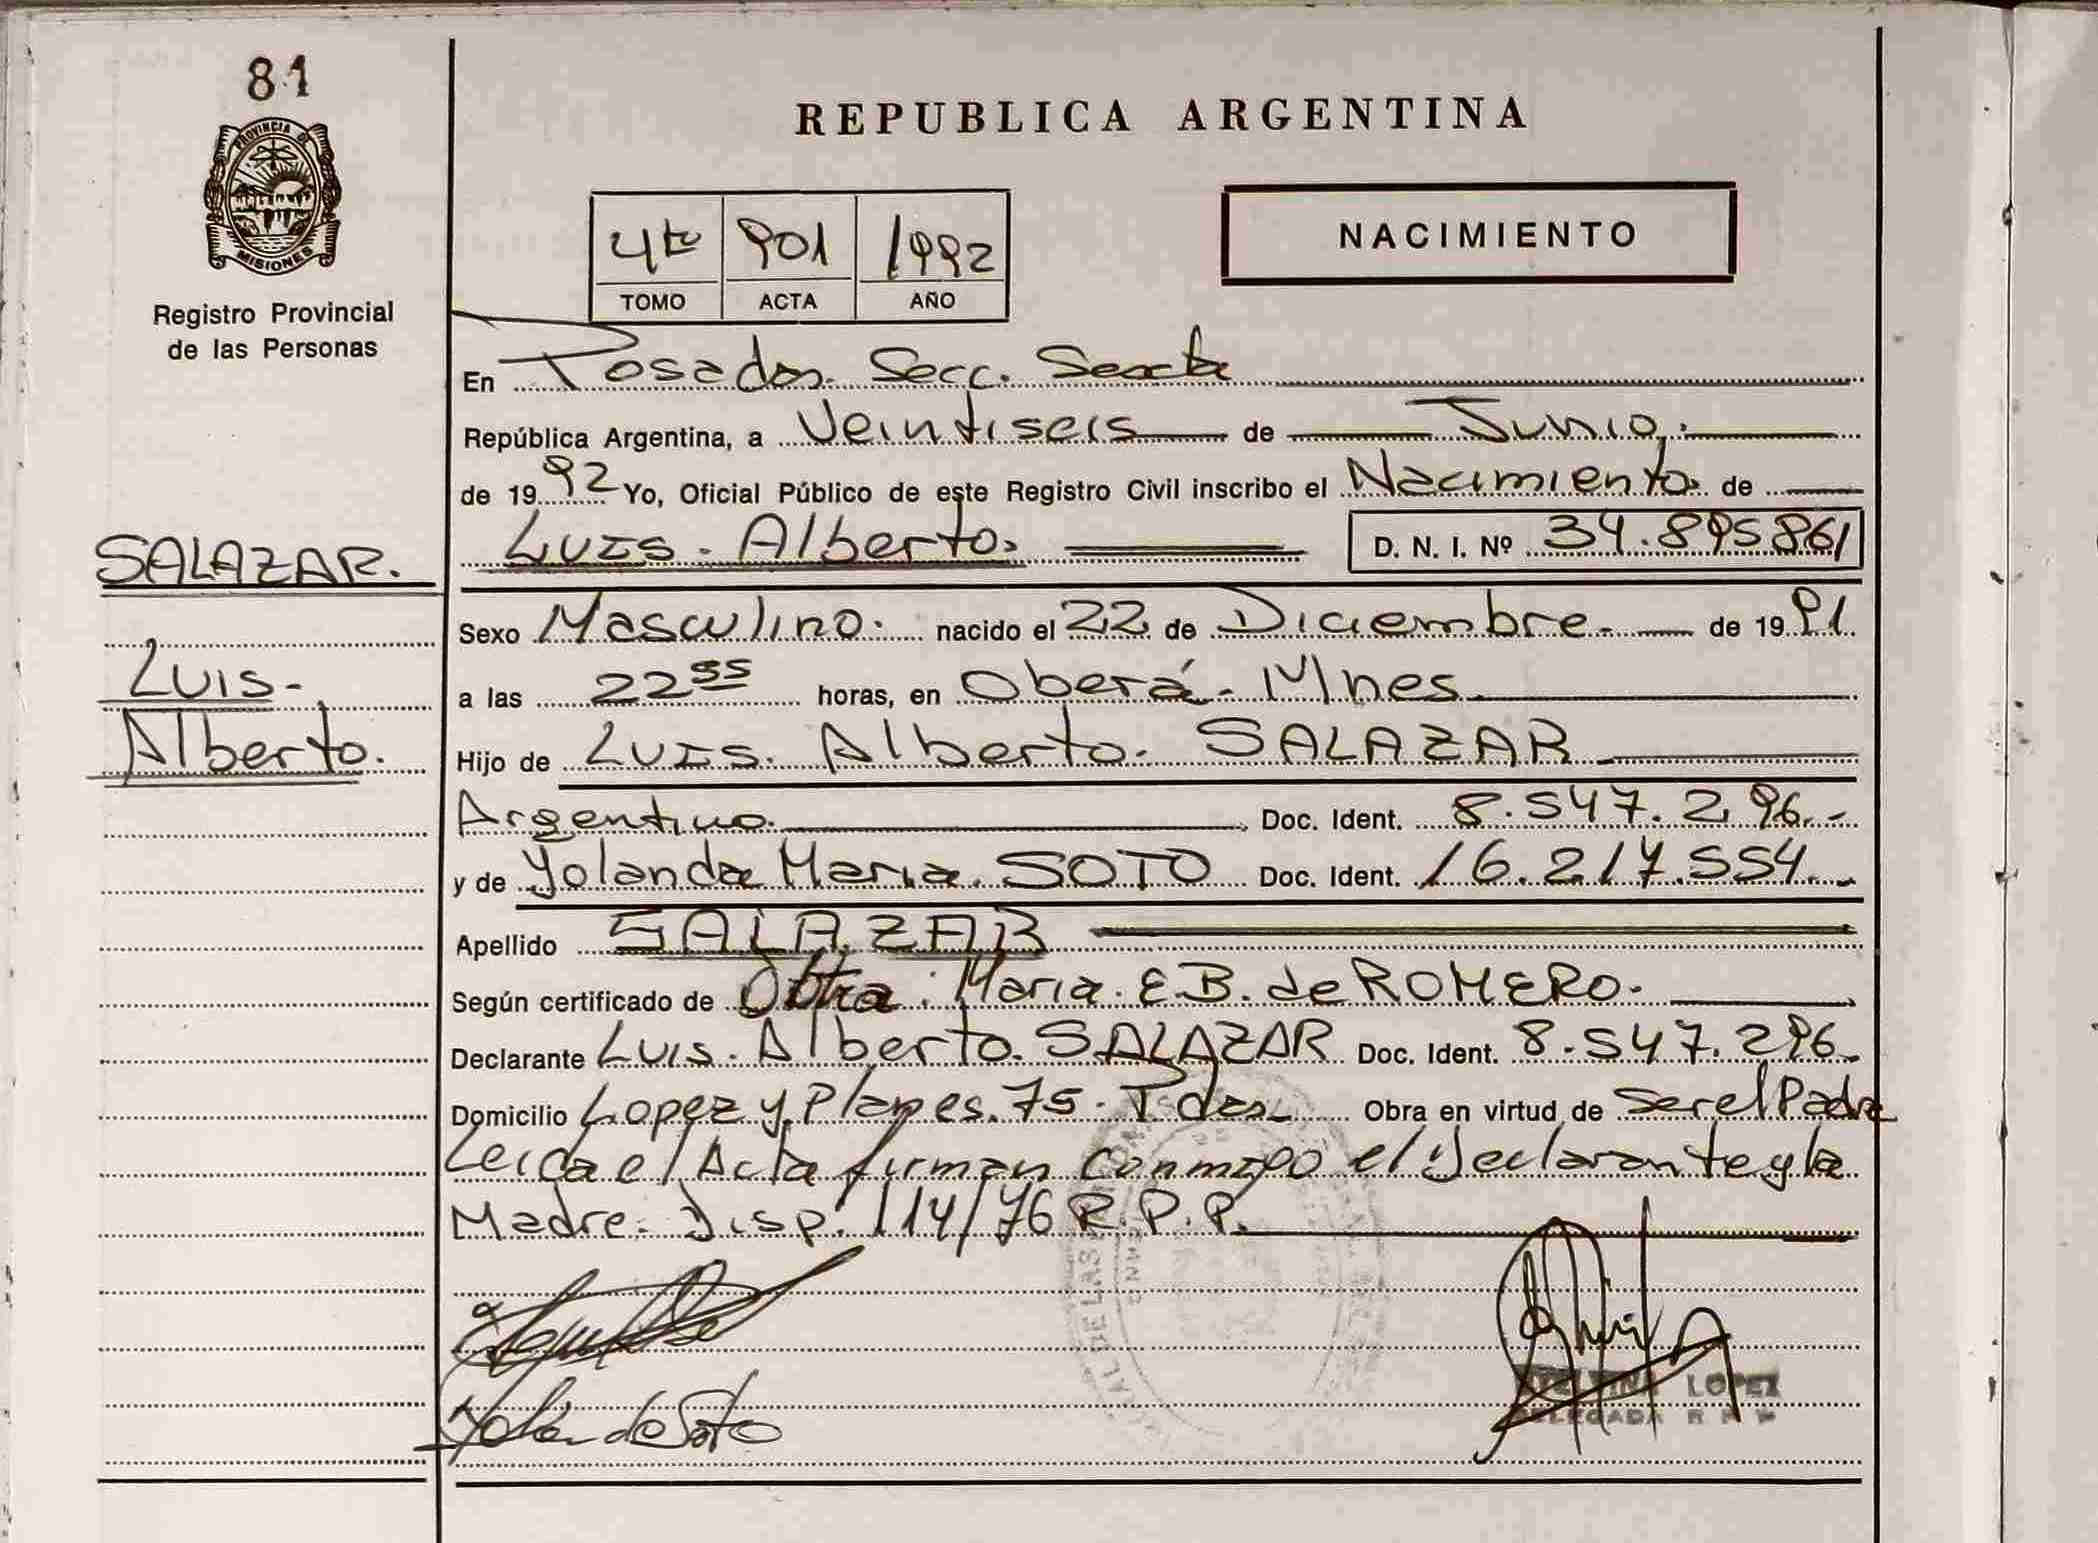 81
PROVINCIA DE
MISIONES
Registro Provincial
de las Personas
SALAZAR.
Luis-
Alberto.
REPUBLICA ARGENTINA
4to 901 1992
TOMO ACTA AÑO
NACIMIENTO
En Posadas. Secc. Sexta
República Argentina, a Veintiseis de Junio.
de 1992 Yo, Oficial Público de este Registro Civil inscribo el Nacimiento de
Luis. Alberto. D. N. I. Nº 34.895861
Sexo Masculino. nacido el 22 de Diciembre. de 1991.
a las 22 55 horas, en Oberá. Mnes.
Hijo de Luis. Alberto. SALAZAR
Argentino. Doc. Ident. 8.547.296.-
y de Yolanda Maria. SOTO Doc. Ident. 16.217.554.
Apellido SALAZAR
Según certificado de Obtra. Maria. E.B. de ROMERO.
Declarante Luis. Alberto. SALAZAR Doc. Ident. 8.547.296.
Domicilio Lopez y Planes. 75. Pdas. Obra en virtud de Ser el Padre
Leida el Acta firman conmigo el Declarante y la
Madre. Disp. 114/76 R.P.P.
DE LAS
LOPEZ
DELEGADA R P P